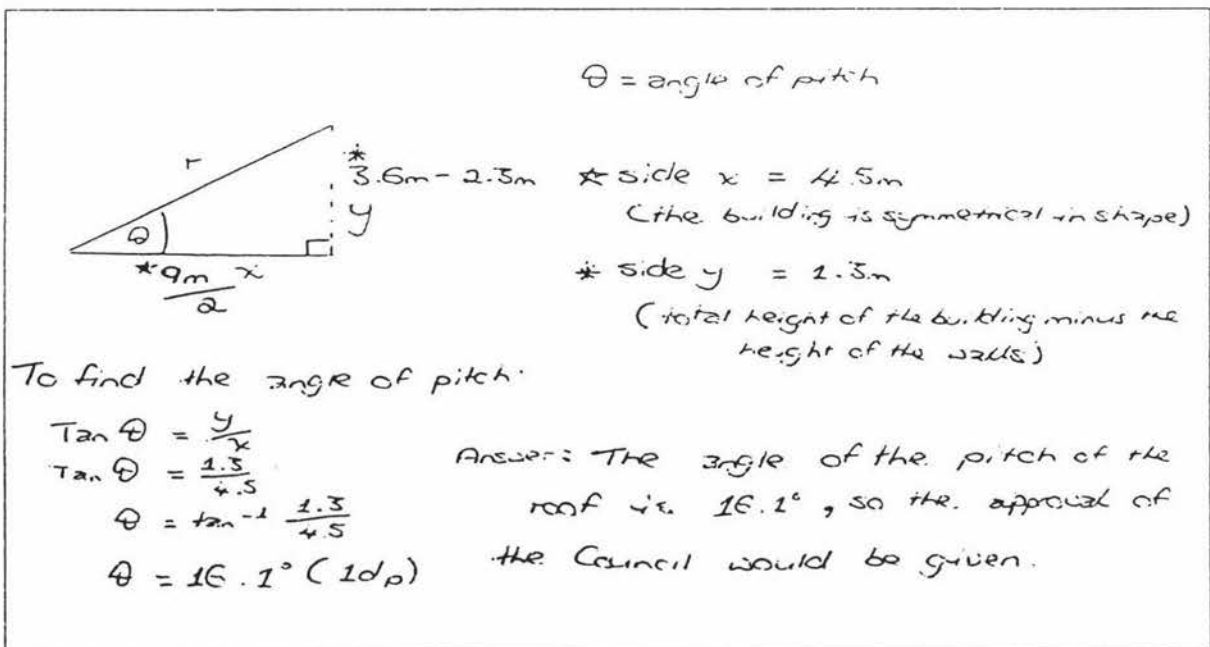 θ = angle of pitch
r
*
3.6m - 2.3m
y
θ
* 9m x
2
* side x = 4.5m
(the building is symmetrical in shape)
* side y = 1.3m
(total height of the building minus the
height of the walls)
To find the angle of pitch.
Tan θ = y/x
Tan θ = 1.3/4.5
θ = tan⁻¹ 1.3/4.5
θ = 16.1° (1dp)
Answer: The angle of the pitch of the
roof is 16.1°, so the approval of
the Council would be given.